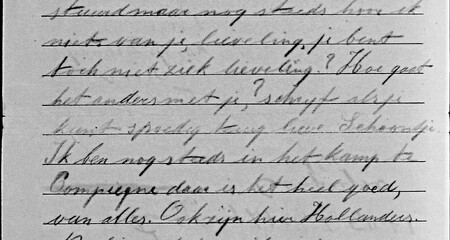 stuurd maar nog steeds hoor ik
niets van je, lieveling, je bent
toch niet ziek lieveling? Hoe gaat
het anders met je? schrijf als je
kunt spoedig terug lieve
Ik ben nog steeds in het kamp te
Compiegne daar is het heel goed,
van alles. Ook zijn hier Hollanders.